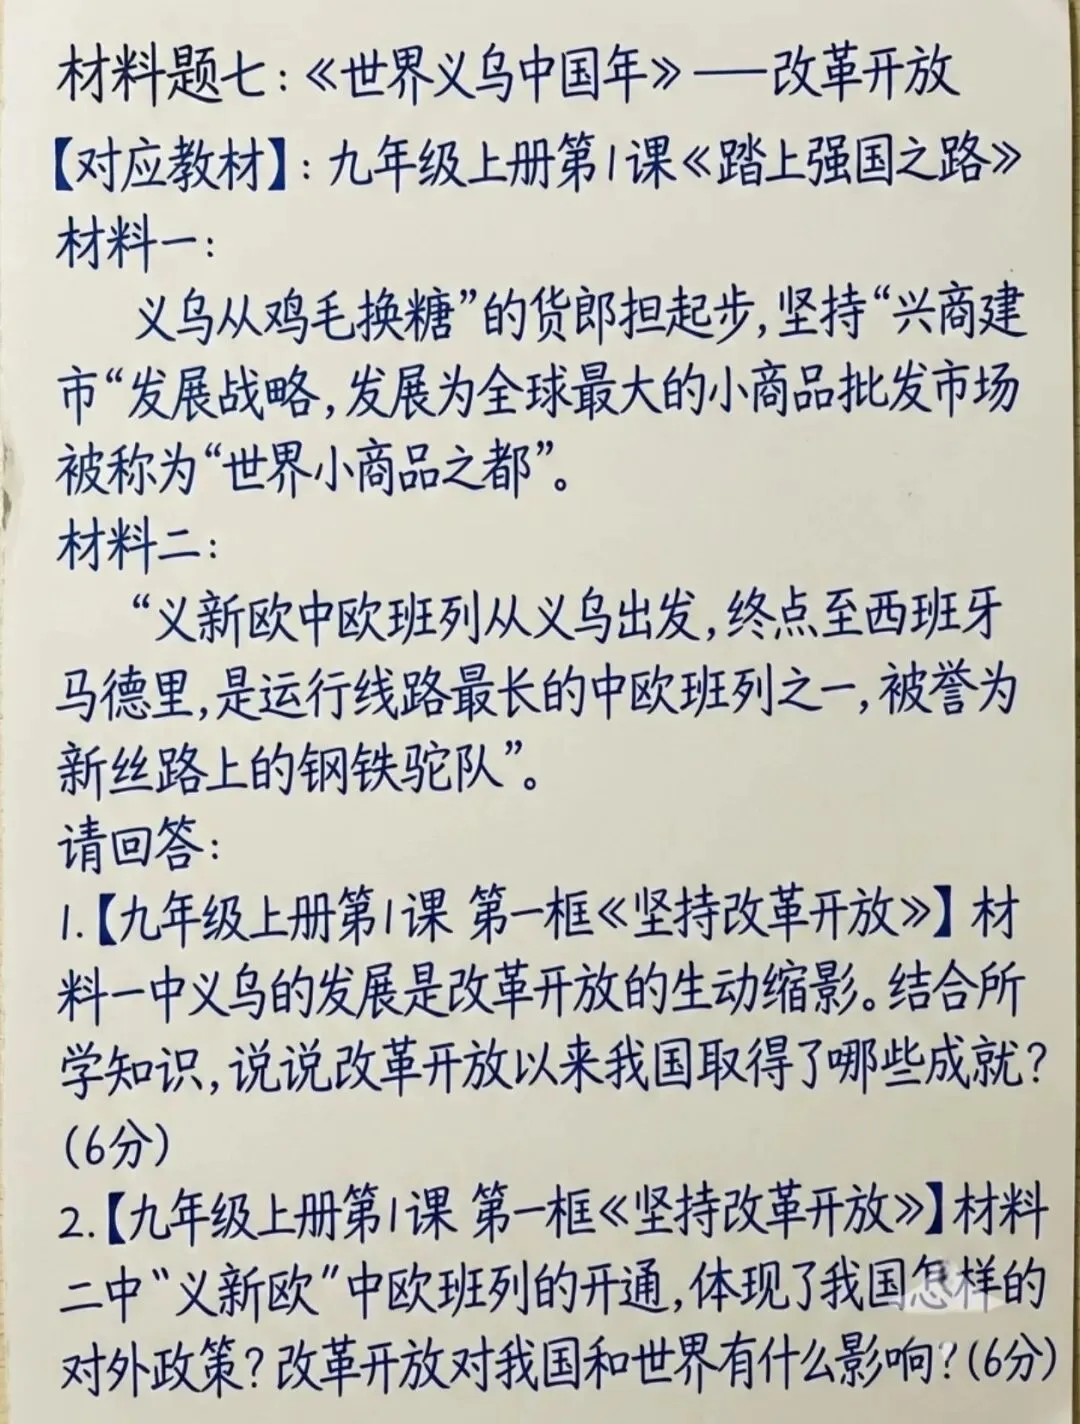 材料题七:《世界义乌中国年》——改革开放
【对应教材】:九年级上册第1课《踏上强国之路》
材料一:
义乌从鸡毛换糖”的货郎担起步,坚持“兴商建
市“发展战略,发展为全球最大的小商品批发市场
被称为“世界小商品之都”。
材料二:
“义新欧中欧班列从义乌出发,终点至西班牙
马德里,是运行线路最长的中欧班列之一,被誉为
新丝路上的钢铁驼队”。
请回答:
1.【九年级上册第1课 第一框《坚持改革开放》】材
料一中义乌的发展是改革开放的生动缩影。结合所
学知识,说说改革开放以来我国取得了哪些成就?
(6分)
2.【九年级上册第1课 第一框《坚持改革开放》】材料
二中“义新欧”中欧班列的开通,体现了我国怎样的
对外政策?改革开放对我国和世界有什么影响?(6分)